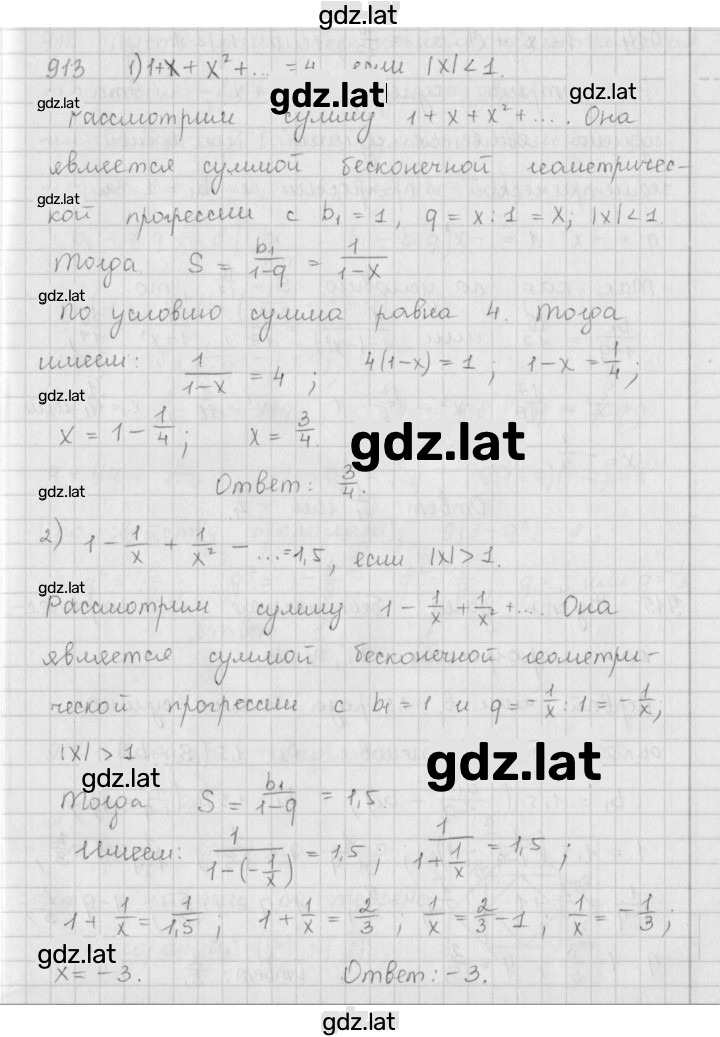 gdz.lat
913 1) 1+x+x²+... = 4, если |x|<1.
gdz.lat gdz.lat gdz.lat
Рассмотрим сумму 1+x+x²+... . Она
является суммой бесконечной геометричес-
gdz.lat
кой прогрессии с b₁=1, q=x:1=x; |x|<1.
Тогда S = b₁/(1-q) = 1/(1-x)
gdz.lat
По условию сумма равна 4. Тогда
имеем: 1/(1-x) = 4; 4(1-x)=1; 1-x=1/4;
gdz.lat
x = 1-1/4; x = 3/4.
gdz.lat
gdz.lat
Ответ: 3/4.
2) 1 - 1/x + 1/x² - ...=1,5, если |x|>1.
gdz.lat
Рассмотрим сумму 1 - 1/x + 1/x² + ... Она
является суммой бесконечной геометри-
ческой прогрессии с b₁=1 и q=-1/x:1=-1/x;
|x|>1
gdz.lat
gdz.lat
Тогда S = b₁/(1-q) = 1,5
Имеем: 1/(1-(-1/x)) = 1,5; 1/(1+1/x) = 1,5;
1+1/x=1/1,5; 1+1/x=2/3; 1/x=2/3-1; 1/x=-1/3;
gdz.lat
x=-3. Ответ: -3.
gdz.lat